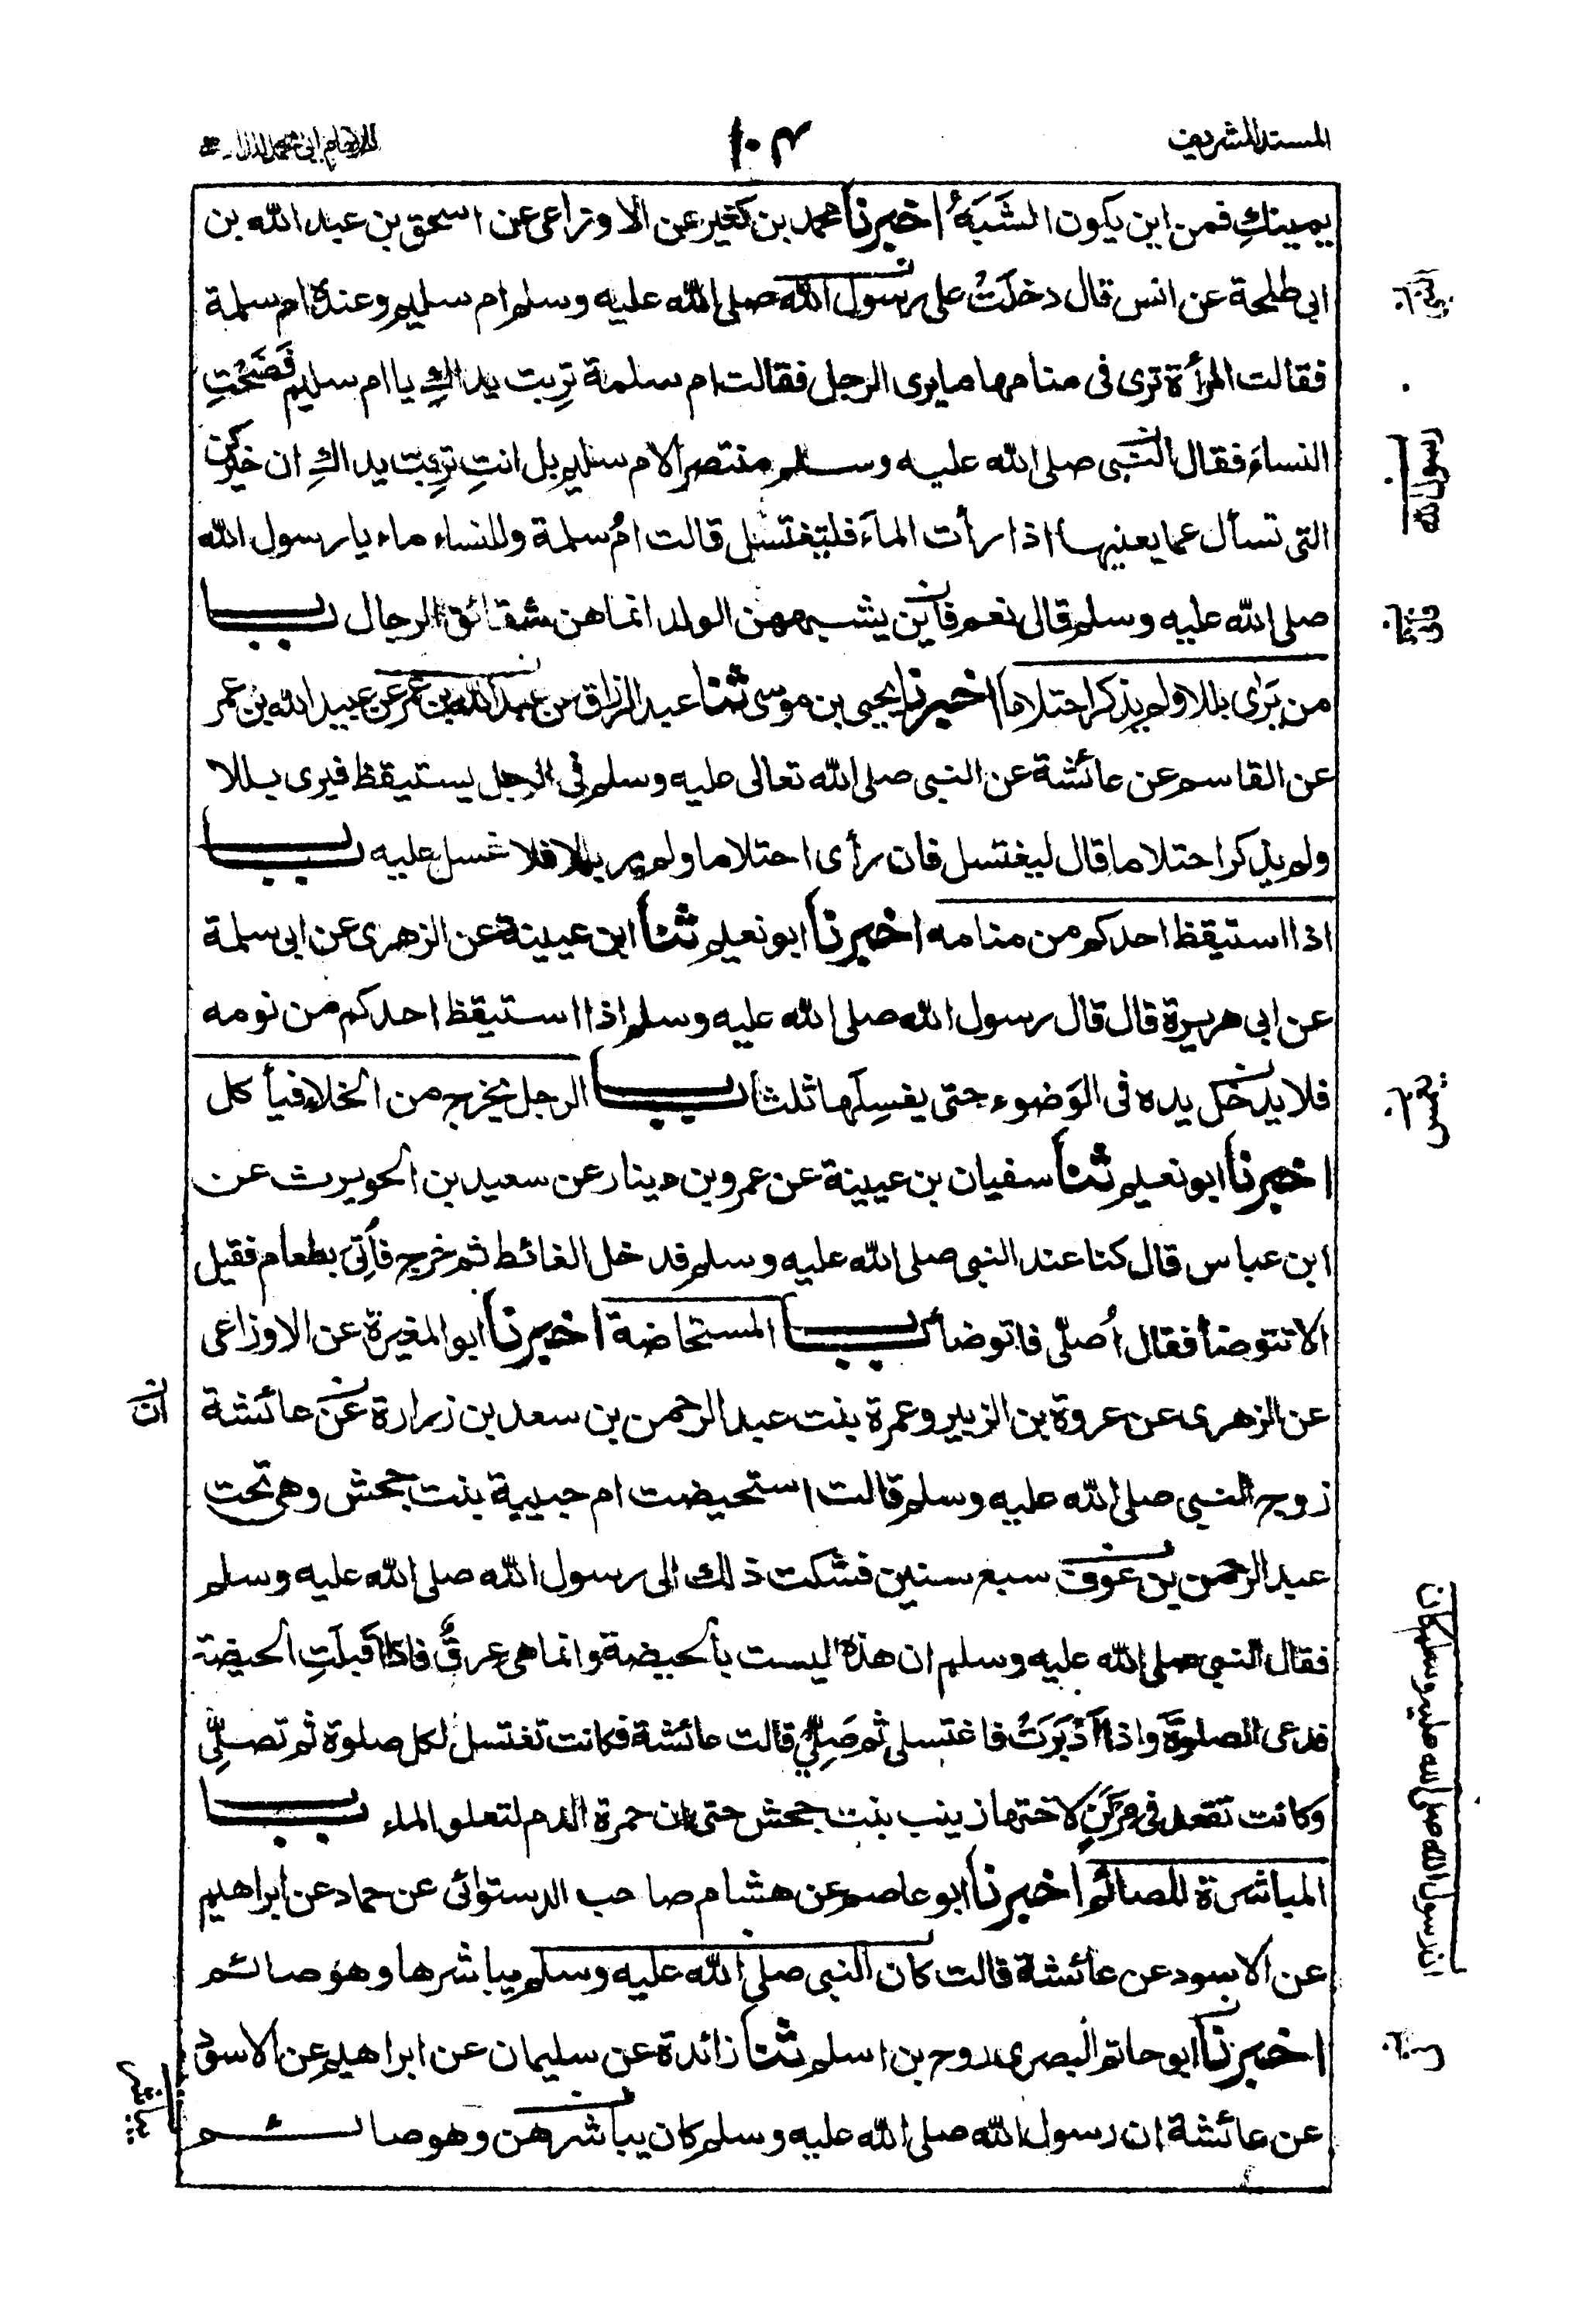 المسند الشريف
١٠٤
للامام ابى محمد الدارمى
يمينكِ فمن اين يكون الشَبَهُ اخبرنا محمد بن كثير عن الاوزاعى عن اسحق بن عبد الله بن
ابى طلحة عن انس قال دخلَتْ على رسول الله صلى الله عليه وسلم ام سليم وعنده ام سلمة
فقالت المرأة ترى فى منامها ما يرى الرجل فقالت ام سلمة ترِبت يداكِ يا ام سليم فَضَحْتِ
النساءَ فقال النبى صلى الله عليه وسلم منتصرا لام سليم بل انتِ ترِبت يداكِ ان خيركن
التى تسأل عما يعنيها اذا رأت الماءَ فلتغتسل قالت امُ سلمة وللنساء ماء يا رسول الله
صلى الله عليه وسلم قال نعم فاين يشبههن الولد انما هن شقائق الرجال بــاب
من يَرٰى بللا ولم يذكر احتلاما اخبرنا يحيى بن موسى ثنا عبد الرزاق عن عبد الله بن عمر عن عبيد الله بن عمر
عن القاسم عن عائشة عن النبى صلى الله تعالى عليه وسلم فى الرجل يستيقظ فيرى بللا
ولم يذكر احتلاما قال ليغتسل فان رأى احتلاما ولم ير بللا فلا غسل عليه بــاب
اذا استيقظ احدكم من منامه اخبرنا ابو نعيم ثنا ابن عيينة عن الزهرى عن ابى سلمة
عن ابى هريرة قال قال رسول الله صلى الله عليه وسلم اذا استيقظ احدكم من نومه
فلا يدخل يده فى الوَضوء حتى يغسِلَها ثلثا بــاب الرجل يخرج من الخلاء فيأكل
اخبرنا ابو نعيم ثنا سفيان بن عيينة عن عمرو بن دينار عن سعيد بن الحويرث عن
ابن عباس قال كنا عند النبى صلى الله عليه وسلم فدخل الغائط ثم خرج فاُتِىَ بطعام فقيل
الا تتوضأ فقال اُصلّى فاتوضأ بــاب المستحاضة اخبرنا ابو المغيرة عن الاوزاعى
عن الزهرى عن عروة بن الزبير وعمرة بنت عبد الرحمن بن سعد بن زرارة عن عائشة
ان
زوج النبى صلى الله عليه وسلم قالت استحيضت ام حبيبة بنت جحش وهى تحت
عبد الرحمن بن عوف سبع سنين فشكت ذلك الى رسول الله صلى الله عليه وسلم
فقال النبى صلى الله عليه وسلم ان هذه ليست بالحيضة وانما هى عِرقٌ فاذا اقبلَتِ الحيضة
فدعى الصلوةَ واذا اَدْبَرَتْ فاغتسلى ثم صَلِّيْ قالت عائشة فكانت تغتسل لكل صلوة ثم تصلِّى
وكانت تقعد فى مِرْكَنٍ لاختها زينب بنت جحش حتى ان حمرة الدم لتعلو الماء بــاب
المباشرة للصائم اخبرنا ابو عاصم عن هشام صاحب الدستوائى عن حماد عن ابراهيم
عن الاسود عن عائشة قالت كان النبى صلى الله عليه وسلم يباشرها وهو صائم
ان رسول الله صلى الله عليه وسلم كان
اخبرنا ابو حاتم البصرى روح بن اسلم ثنا زائدة عن سليمان عن ابراهيم عن الاسود
عن عائشة ان رسول الله صلى الله عليه وسلم كان يباشرهن وهو صائــم